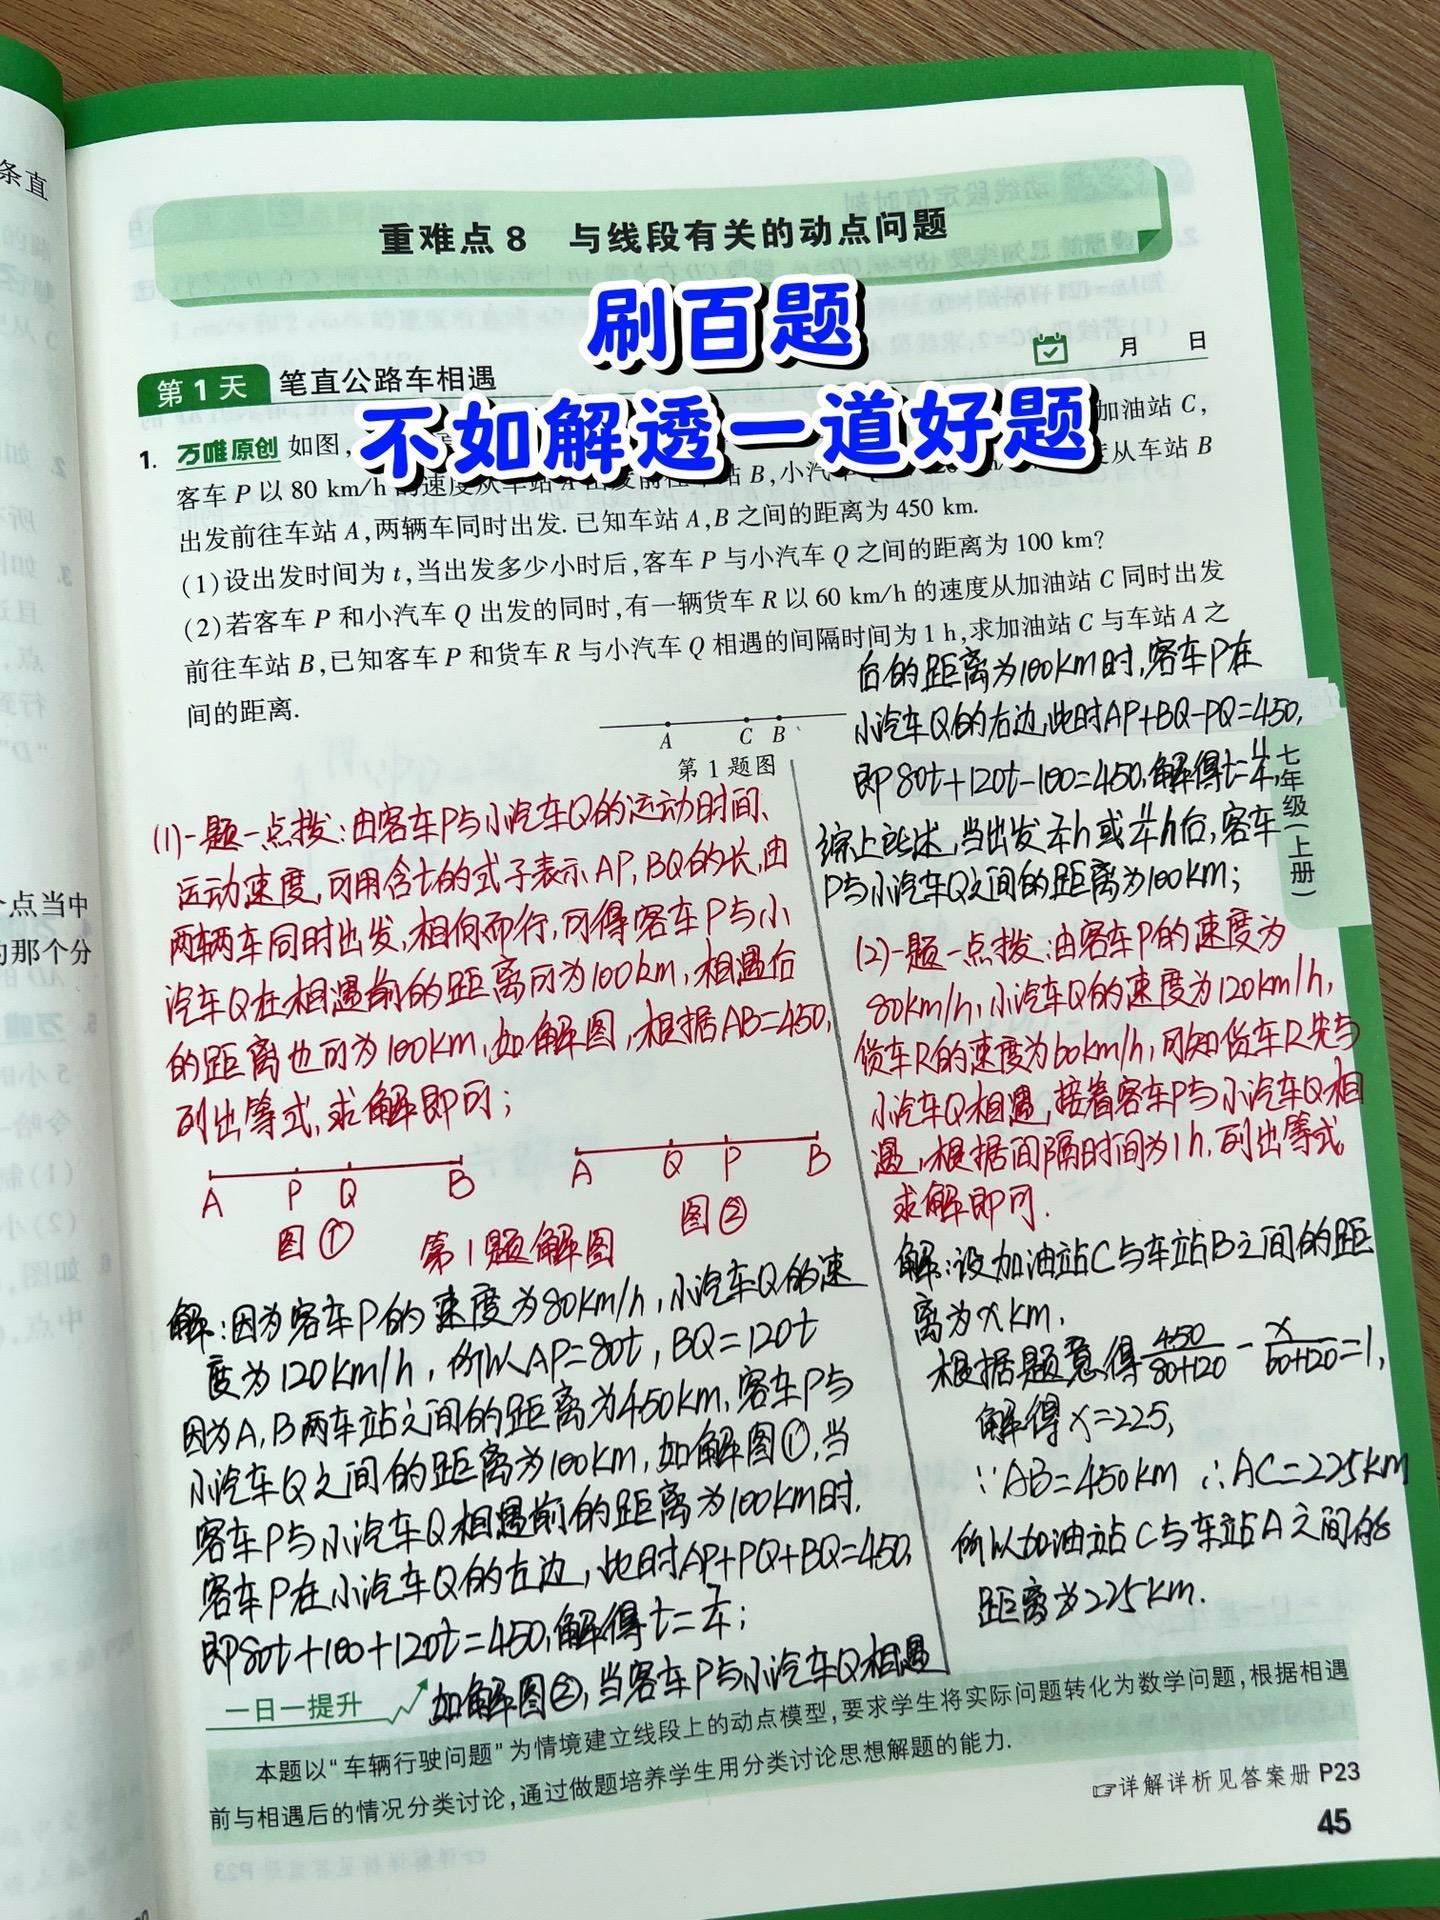 条直
个点当中
的那个分
重难点8 与线段有关的动点问题
刷百题
不如解透一道好题
月 日
第1天 笔直公路车相遇
1. 万唯原创 如图, 加油站C,
客车P以80 km/h的速度从车站A出发前往车站B,小汽车 度从车站B
出发前往车站A,两辆车同时出发.已知车站A,B之间的距离为450 km.
(1)设出发时间为t,当出发多少小时后,客车P与小汽车Q之间的距离为100 km?
(2)若客车P和小汽车Q出发的同时,有一辆货车R以60 km/h的速度从加油站C同时出发
前往车站B,已知客车P和货车R与小汽车Q相遇的间隔时间为1 h,求加油站C与车站A之
间的距离.
A C B
第1题图
(1)一题一点拨:由客车P与小汽车Q的运动时间、
运动速度,可用含t的式子表示AP,BQ的长,由
两辆车同时出发,相向而行,可得客车P与小
汽车Q在相遇前的距离可为100km,相遇后
的距离也可为100km,如解图,根据AB=450,
列出等式,求解即可;
A P Q B
图①
A Q P B
图②
第1题解图
解:因为客车P的速度为80km/h,小汽车Q的速
度为120km/h,所以AP=80t,BQ=120t
因为A,B两车站之间的距离为450km,客车P与
小汽车Q之间的距离为100km,如解图①,当
客车P与小汽车Q相遇前的距离为100km时,
客车P在小汽车Q的左边,此时AP+PQ+BQ=450,
即80t+100+120t=450,解得t=7/4;
如解图②,当客车P与小汽车Q相遇
后的距离为100km时,客车P在
小汽车Q的右边,此时AP+BQ-PQ=450,
即80t+120t-100=450,解得t=11/4,
综上所述,当出发7/4h或11/4h后,客车
P与小汽车Q之间的距离为100km;
(2)一题一点拨:由客车P的速度为
80km/h,小汽车Q的速度为120km/h,
货车R的速度为60km/h,可知货车R先与
小汽车Q相遇,接着客车P与小汽车Q相
遇,根据间隔时间为1h,列出等式
求解即可.
解:设加油站C与车站B之间的距
离为xkm,
根据题意,得450/80+120-x/60+120=1,
解得x=225,
∵AB=450km ∴AC=225km
所以加油站C与车站A之间的
距离为225km.
七年级(上册)
一日一提升
本题以“车辆行驶问题”为情境建立线段上的动点模型,要求学生将实际问题转化为数学问题,根据相遇
前与相遇后的情况分类讨论,通过做题培养学生用分类讨论思想解题的能力.
☞详解详析见答案册P23
45